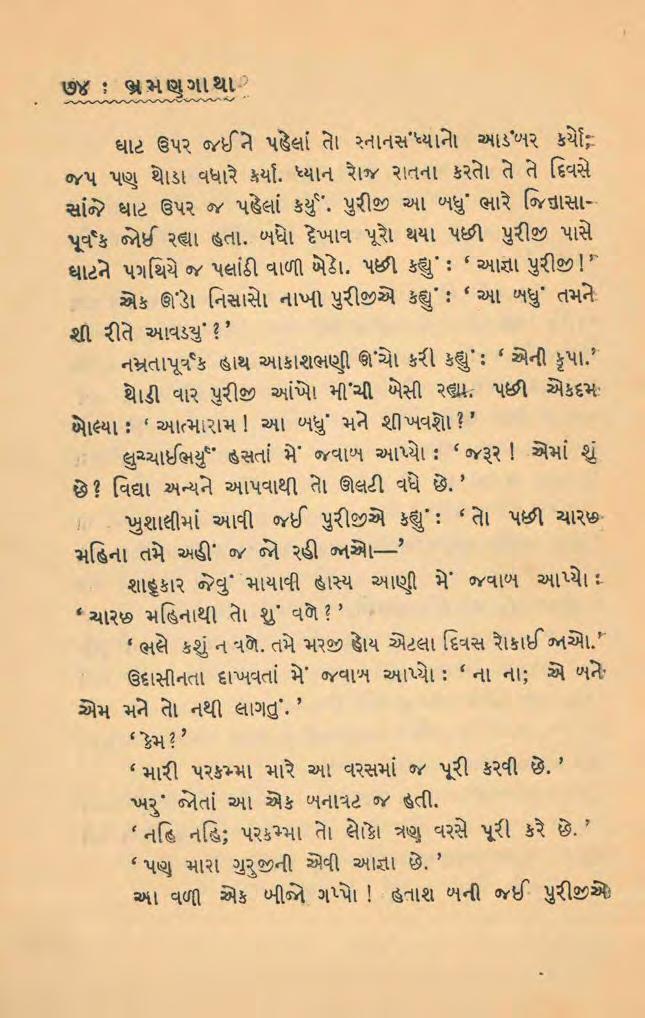 ૭૪ : ભ્રમણગાથા
ઘાટ ઉપર જઈને પહેલાં તો સ્નાનસંધ્યાનો આડંબર કર્યો;
જપ પણ થોડા વધારે કર્યા. ધ્યાન રોજ રાતના કરતો તે તે દિવસે
સાંજે ઘાટ ઉપર જ પહેલાં કર્યું. પુરીજી આ બધું ભારે જિજ્ઞાસા-
પૂર્વક જોઈ રહ્યા હતા. બધો દેખાવ પૂરો થયા પછી પુરીજી પાસે
ઘાટને પગથિયે જ પલાંઠી વાળી બેઠો. પછી કહ્યું : ‘ આજ્ઞા પુરીજી!’
એક ઊંડો નિસાસો નાખી પુરીજીએ કહ્યું : ‘ આ બધું તમને
શી રીતે આવડયું ?’
નમ્રતાપૂર્વક હાથ આકાશભણી ઊંચો કરી કહ્યું : ‘ એની કૃપા.’
થોડી વાર પુરીજી આંખો મીંચી બેસી રહ્યા. પછી એકદમ
બોલ્યા : ‘ આત્મારામ ! આ બધું મને શીખવશો ?’
લુચ્ચાઈભર્યું હસતાં મેં જવાબ આપ્યો : ‘ જરૂર ! એમાં શું
છે? વિદ્યા અન્યને આપવાથી તો ઊલટી વધે છે. ’
ખુશાલીમાં આવી જઈ પુરીજીએ કહ્યું : ‘ તો પછી ચારછ
મહિના તમે અહીં જ જો રહી જાઓ—’
શાહૂકાર જેવું માયાવી હાસ્ય આણી મેં જવાબ આપ્યો :
‘ ચારછ મહિનાથી તો શું વળે ?’
‘ ભલે કશું ન વળે. તમે મરજી હોય એટલા દિવસ રોકાઈ જાઓ.’
ઉદાસીનતા દાખવતાં મેં જવાબ આપ્યો : ‘ ના ના; એ બને
એમ મને તો નથી લાગતું. ’
‘ કેમ ?’
‘ મારી પરકમ્મા મારે આ વરસમાં જ પૂરી કરવી છે. ’
ખરું જોતાં આ એક બનાવટ જ હતી.
‘ નહિ નહિ; પરકમ્મા તો લોકો ત્રણ વરસે પૂરી કરે છે. ’
‘ પણ મારા ગુરુજીની એવી આજ્ઞા છે. ’
આ વળી એક બીજો ગપ્પો ! હતાશ બની જઈ પુરીજીએ